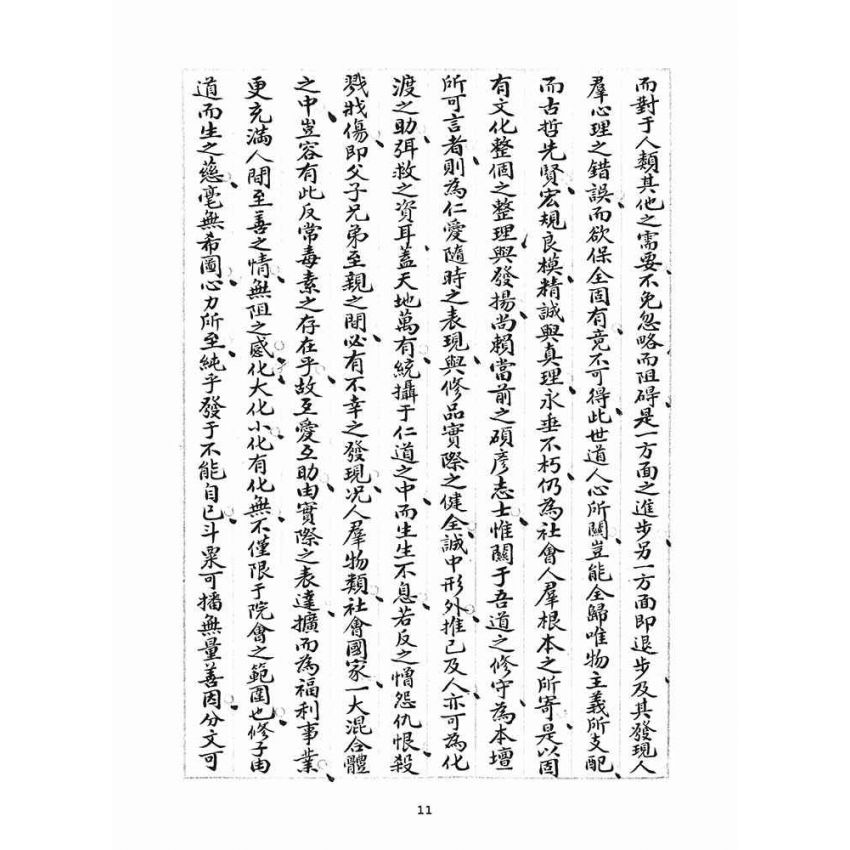 而對于人類其他之需要、不免忽略而阻碍、是一方面之進步另一方面即退步、及其發現人
羣心理之錯誤、而欲保全固有、竟不可得、此世道人心所關、豈能全歸唯物主義所支配、
而古哲先賢、宏規良模、精誠與真理、永垂不朽、仍為社會人羣根本之所寄、是以固
有文化整個之整理與發揚、尚賴當前之碩彥志士、惟關于吾道之修守、為本壇
所可言者、則為仁愛隨時之表現、與修品實際之健全、誠中形外、推己及人、亦可為化
渡之助、弭救之資耳、蓋天地萬有、統攝于仁道之中、而生生不息、若反之憎怨仇恨、殺
戮戕傷、即父子兄弟至親之間、必有不幸之發現、况人羣物類、社會國家、一大混合體
之中、豈容有此反常毒素之存在乎、故互愛互助、由實際之表達、擴而為福利事業、
更充滿人間至善之情、無阻之感化、大化小化、有化無、不僅限于院會之範圍也、修子由
道而生之慈、毫無希圖、心力所至、純乎發于不能自已、斗粟可播無量善因、分文可
11